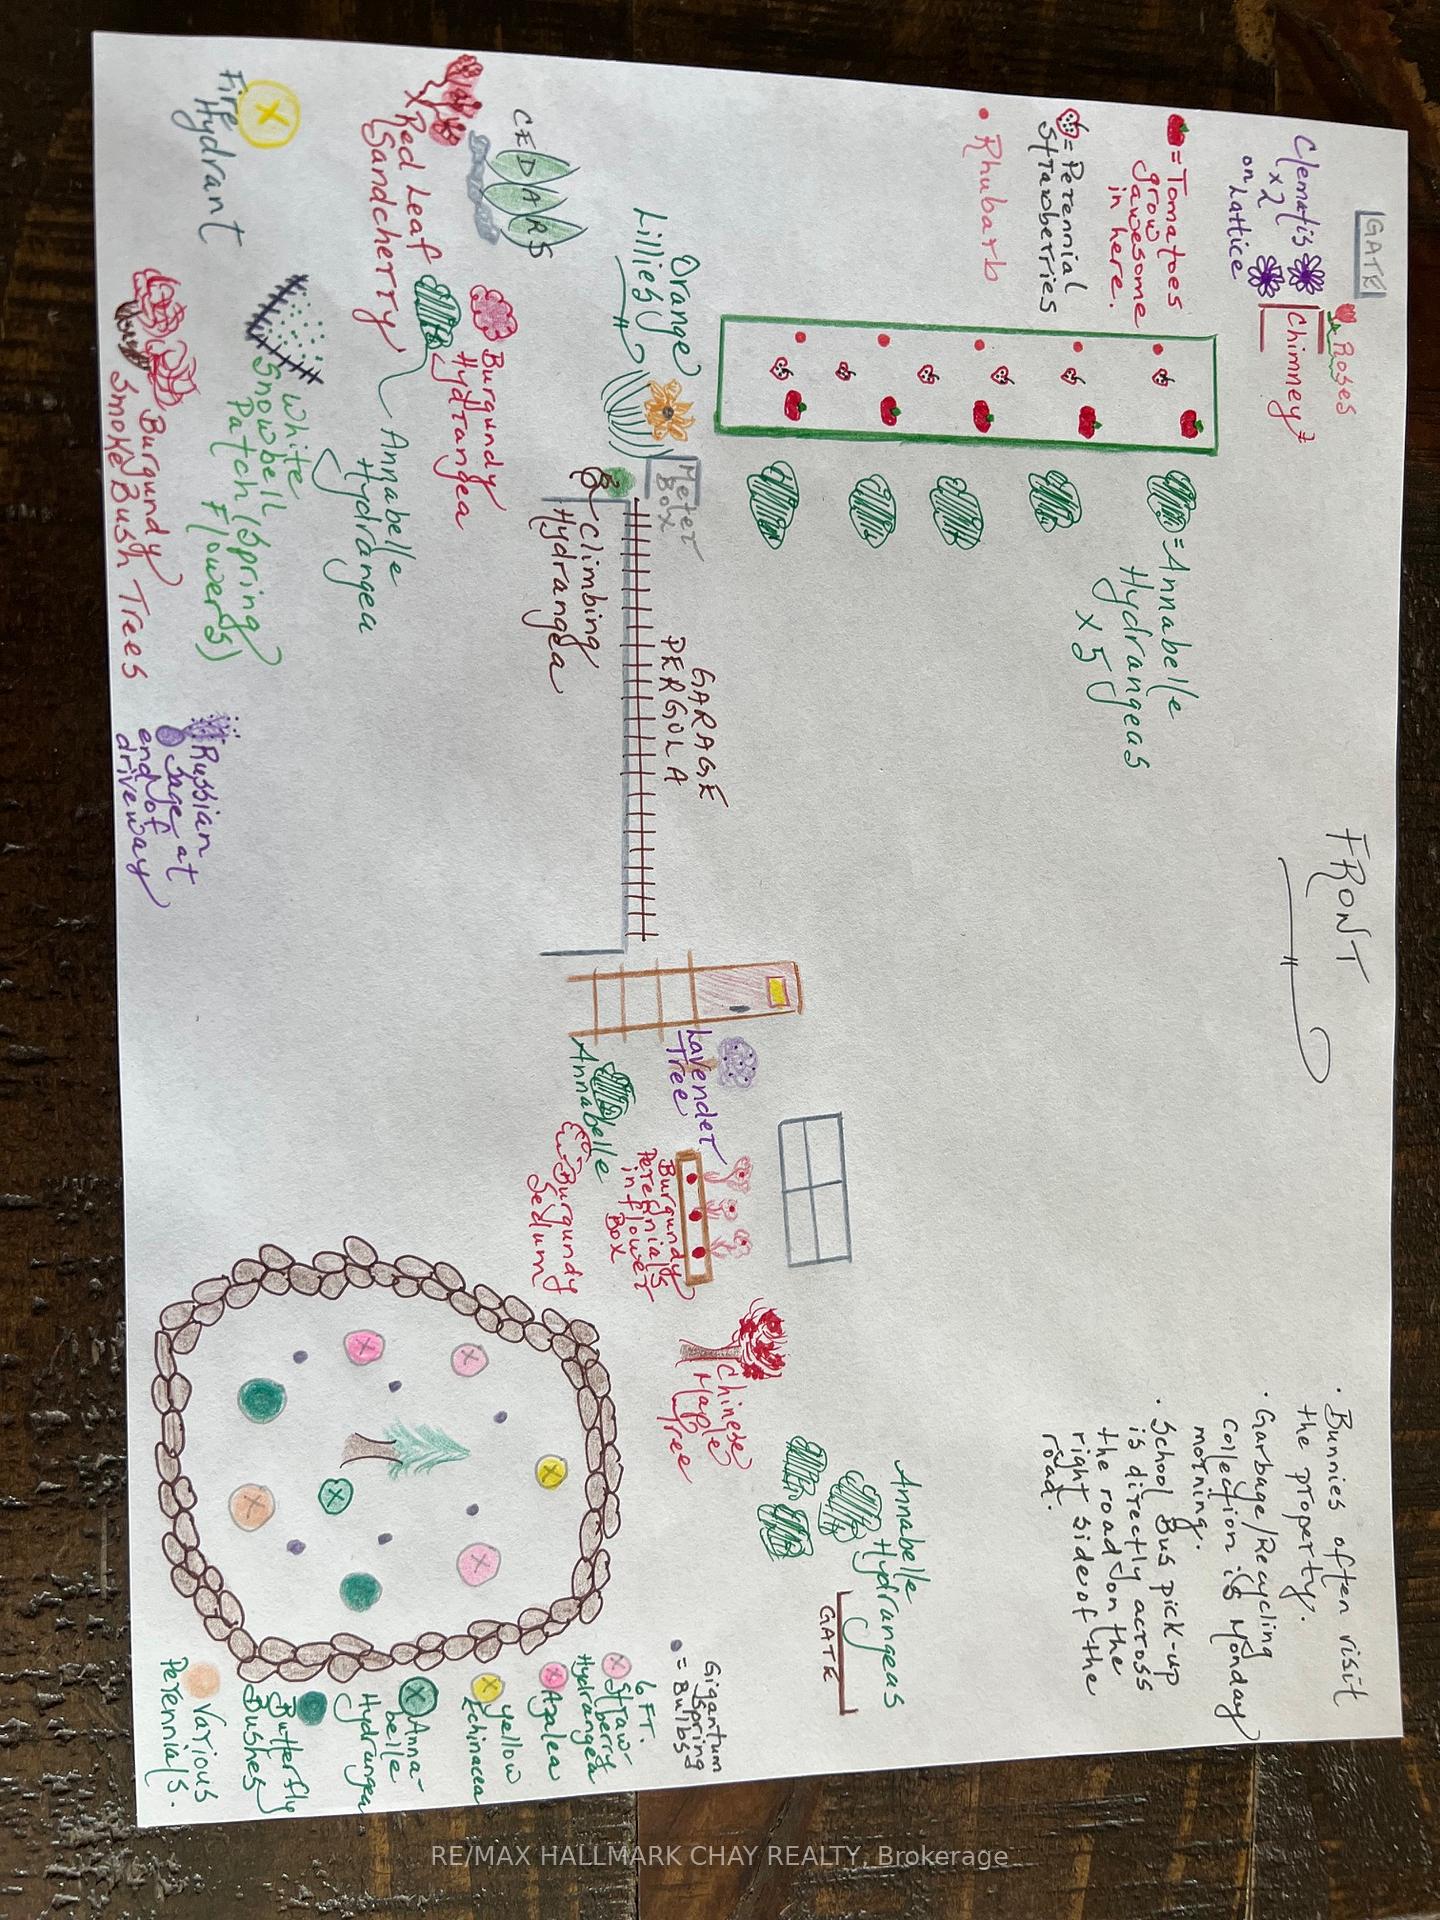 FRONT
GATE
Roses
Chimney
Clematis
x 2
on Lattice
= Tomatoes
grow
awesome
in here.
= Perennial
Strawberries
Rhubarb
= Annabelle
Hydrangeas
x 5
Orange
Lillies
Meter
Box
GARAGE
PERGOLA
Climbing
Hydrangea
CEDARS
Red Leaf
Sandcherry
Burgundy
Hydrangea
Annabelle
Hydrangea
Fire
Hydrant
White
Snowbell
Patch (Spring
Flowers)
Burgundy
Smoke Bush Trees
Russian
Sage at
end of
driveway
Lavender
Tree
Annabelle
Burgundy
Sedum
Burgundy
Perennials
in flower
Box
Chinese
Maple
Tree
Annabelle
Hydrangeas
GATE
· Bunnies often visit
the property.
· Garbage/Recycling
collection is Monday
morning.
· School Bus pick-up
is directly across
the road on the
right side of the
road.
Gigantum
Spring
= Bulbs
6 FT.
Straw-
berry
Hydrangea
Azalea
yellow
Echinacea
Anna-
belle
Hydrangea
Butterfly
Bushes
Various
Perennials.
RE/MAX HALLMARK CHAY REALTY, Brokerage